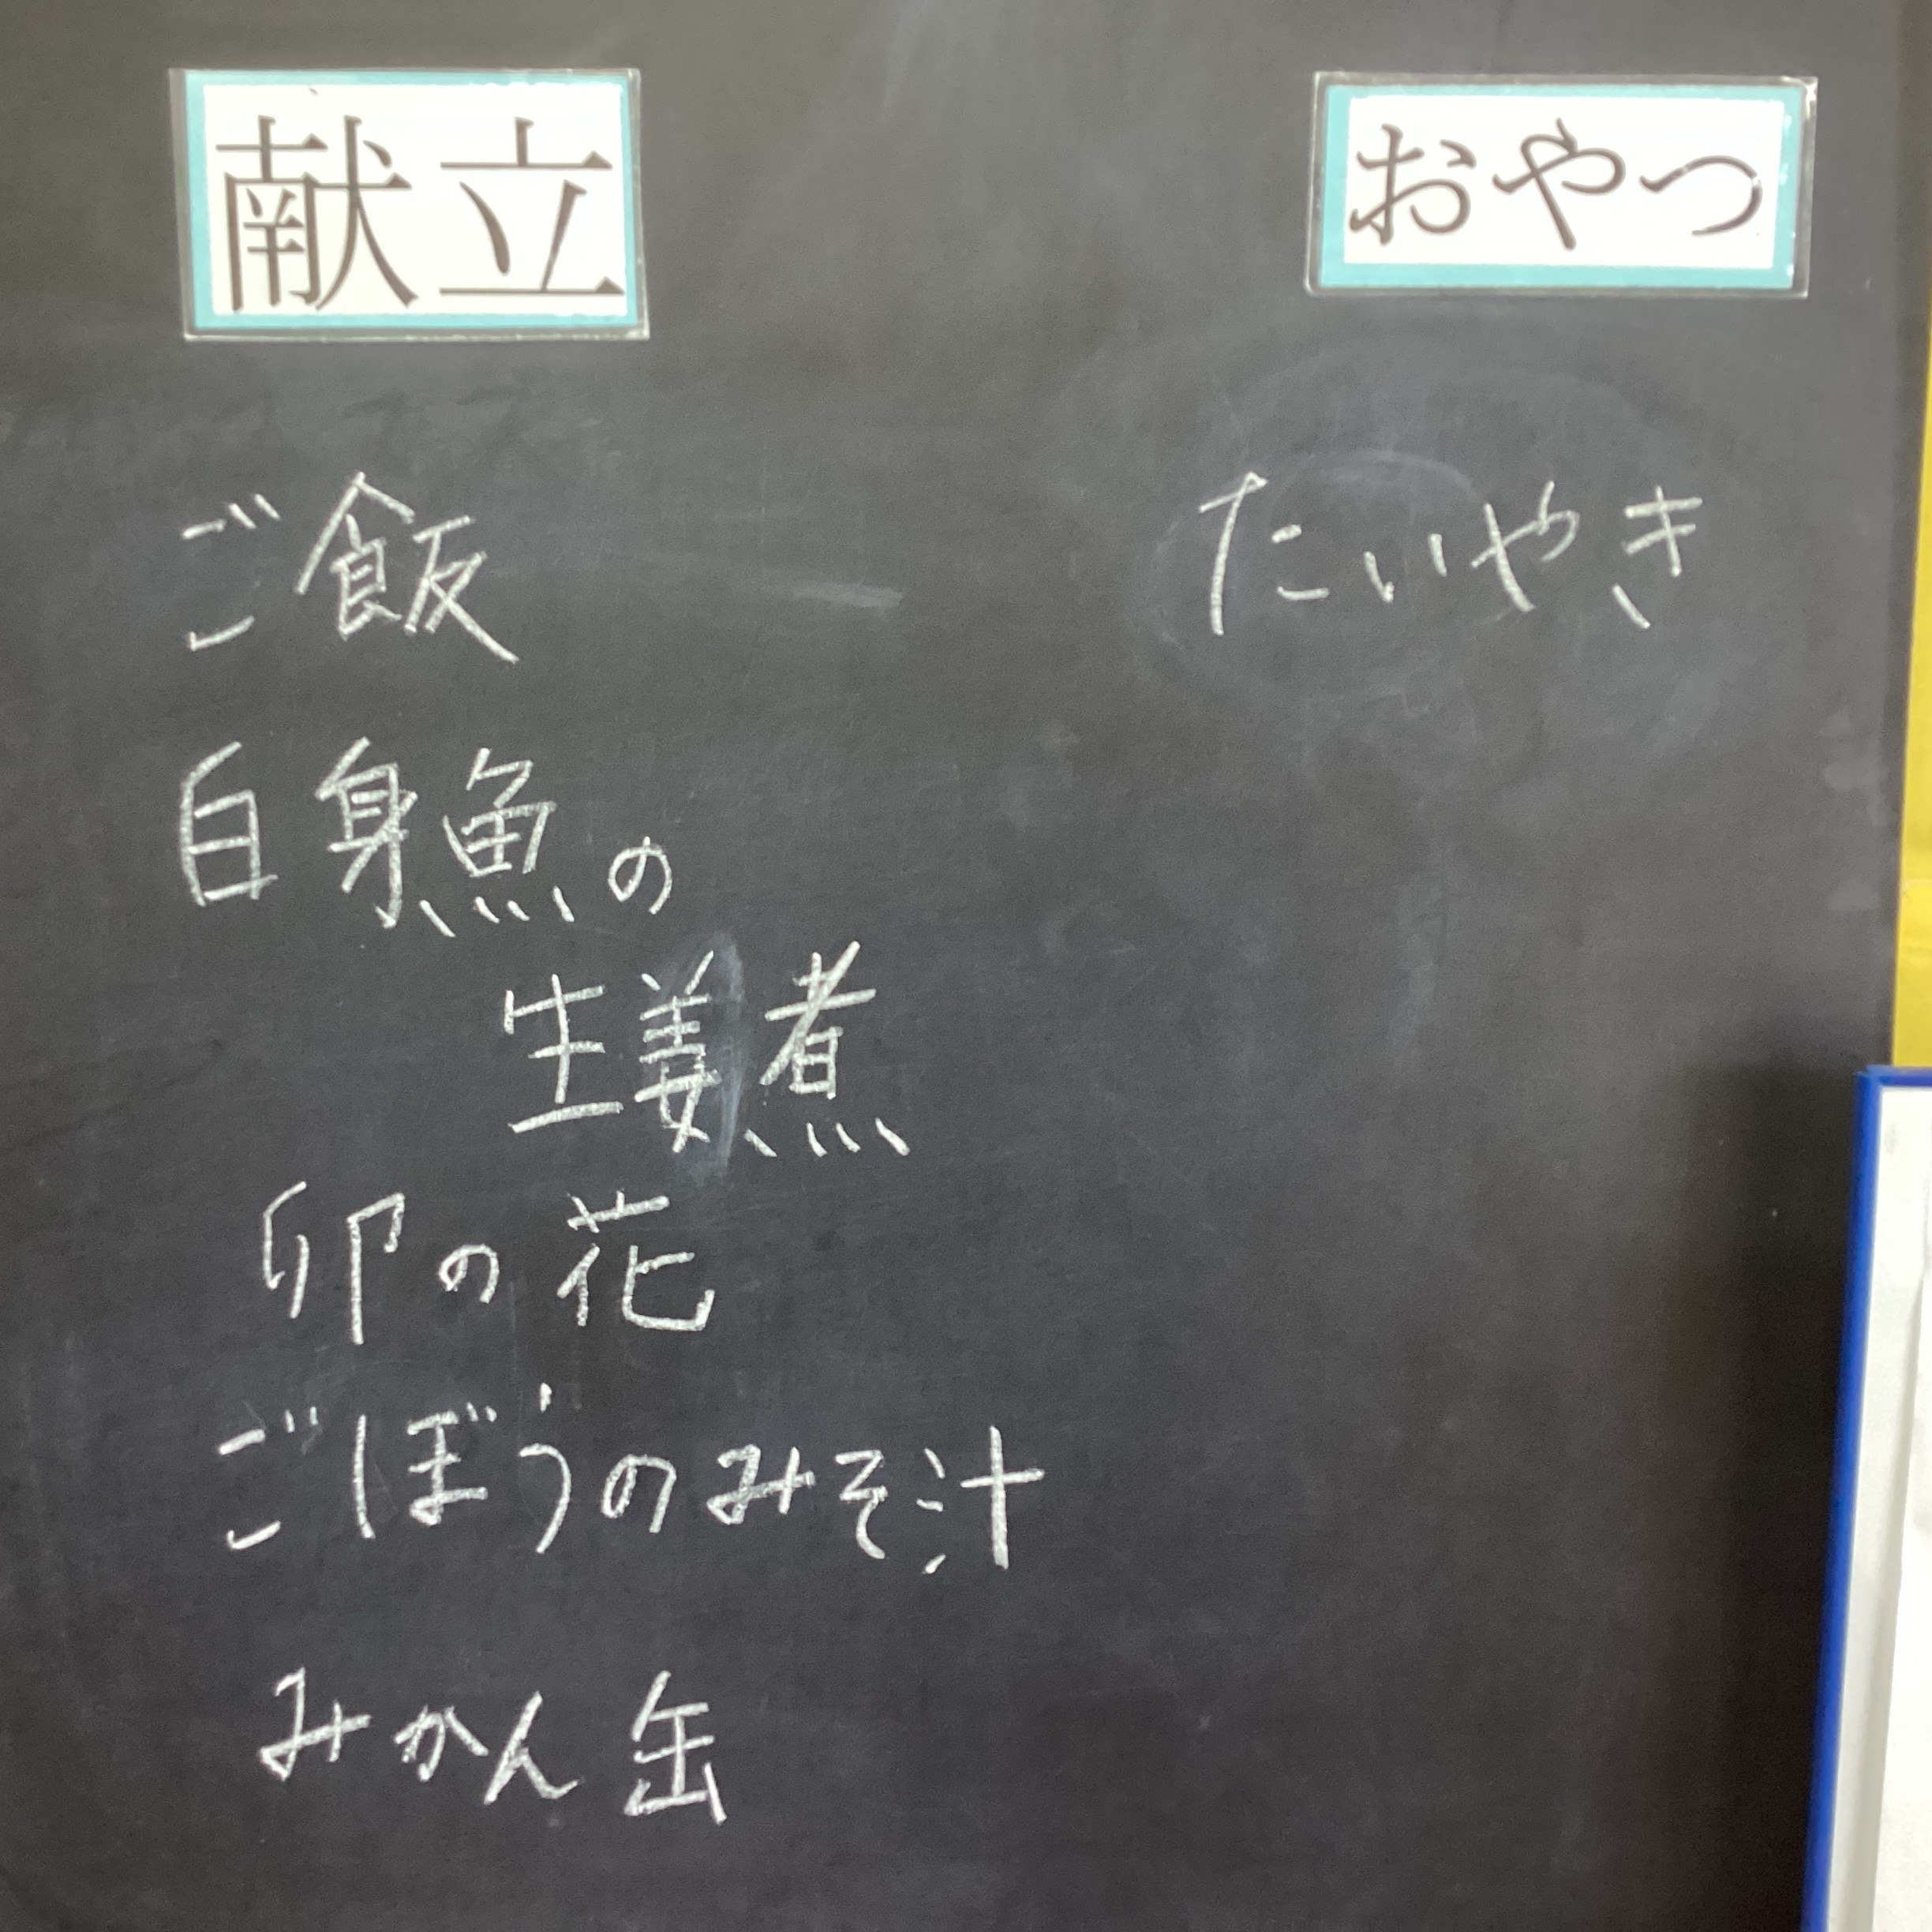 献立
ご飯
白身魚の
生姜煮
卯の花
ごぼうのみそ汁
みかん缶
おやつ
たいやき